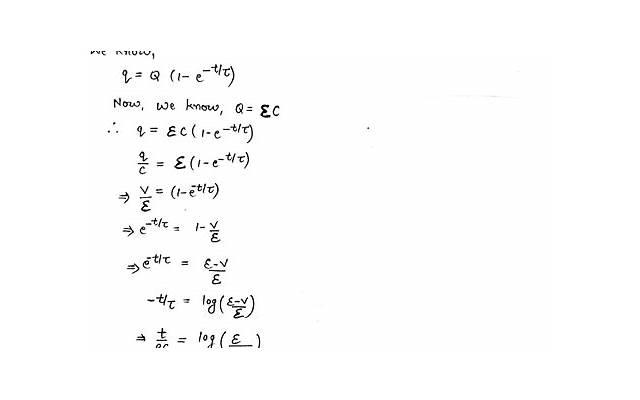 We know,
q = Q (1- e^-t/τ)
Now, we know, Q = εC
∴ q = εC (1-e^-t/τ)
q/C = ε(1-e^-t/τ)
⇒ V/ε = (1-e^-t/τ)
⇒ e^-t/τ = 1-V/ε
⇒ e^-t/τ = ε-V/ε
-t/τ = log(ε-V/ε)
⇒ t/RC = log(ε/